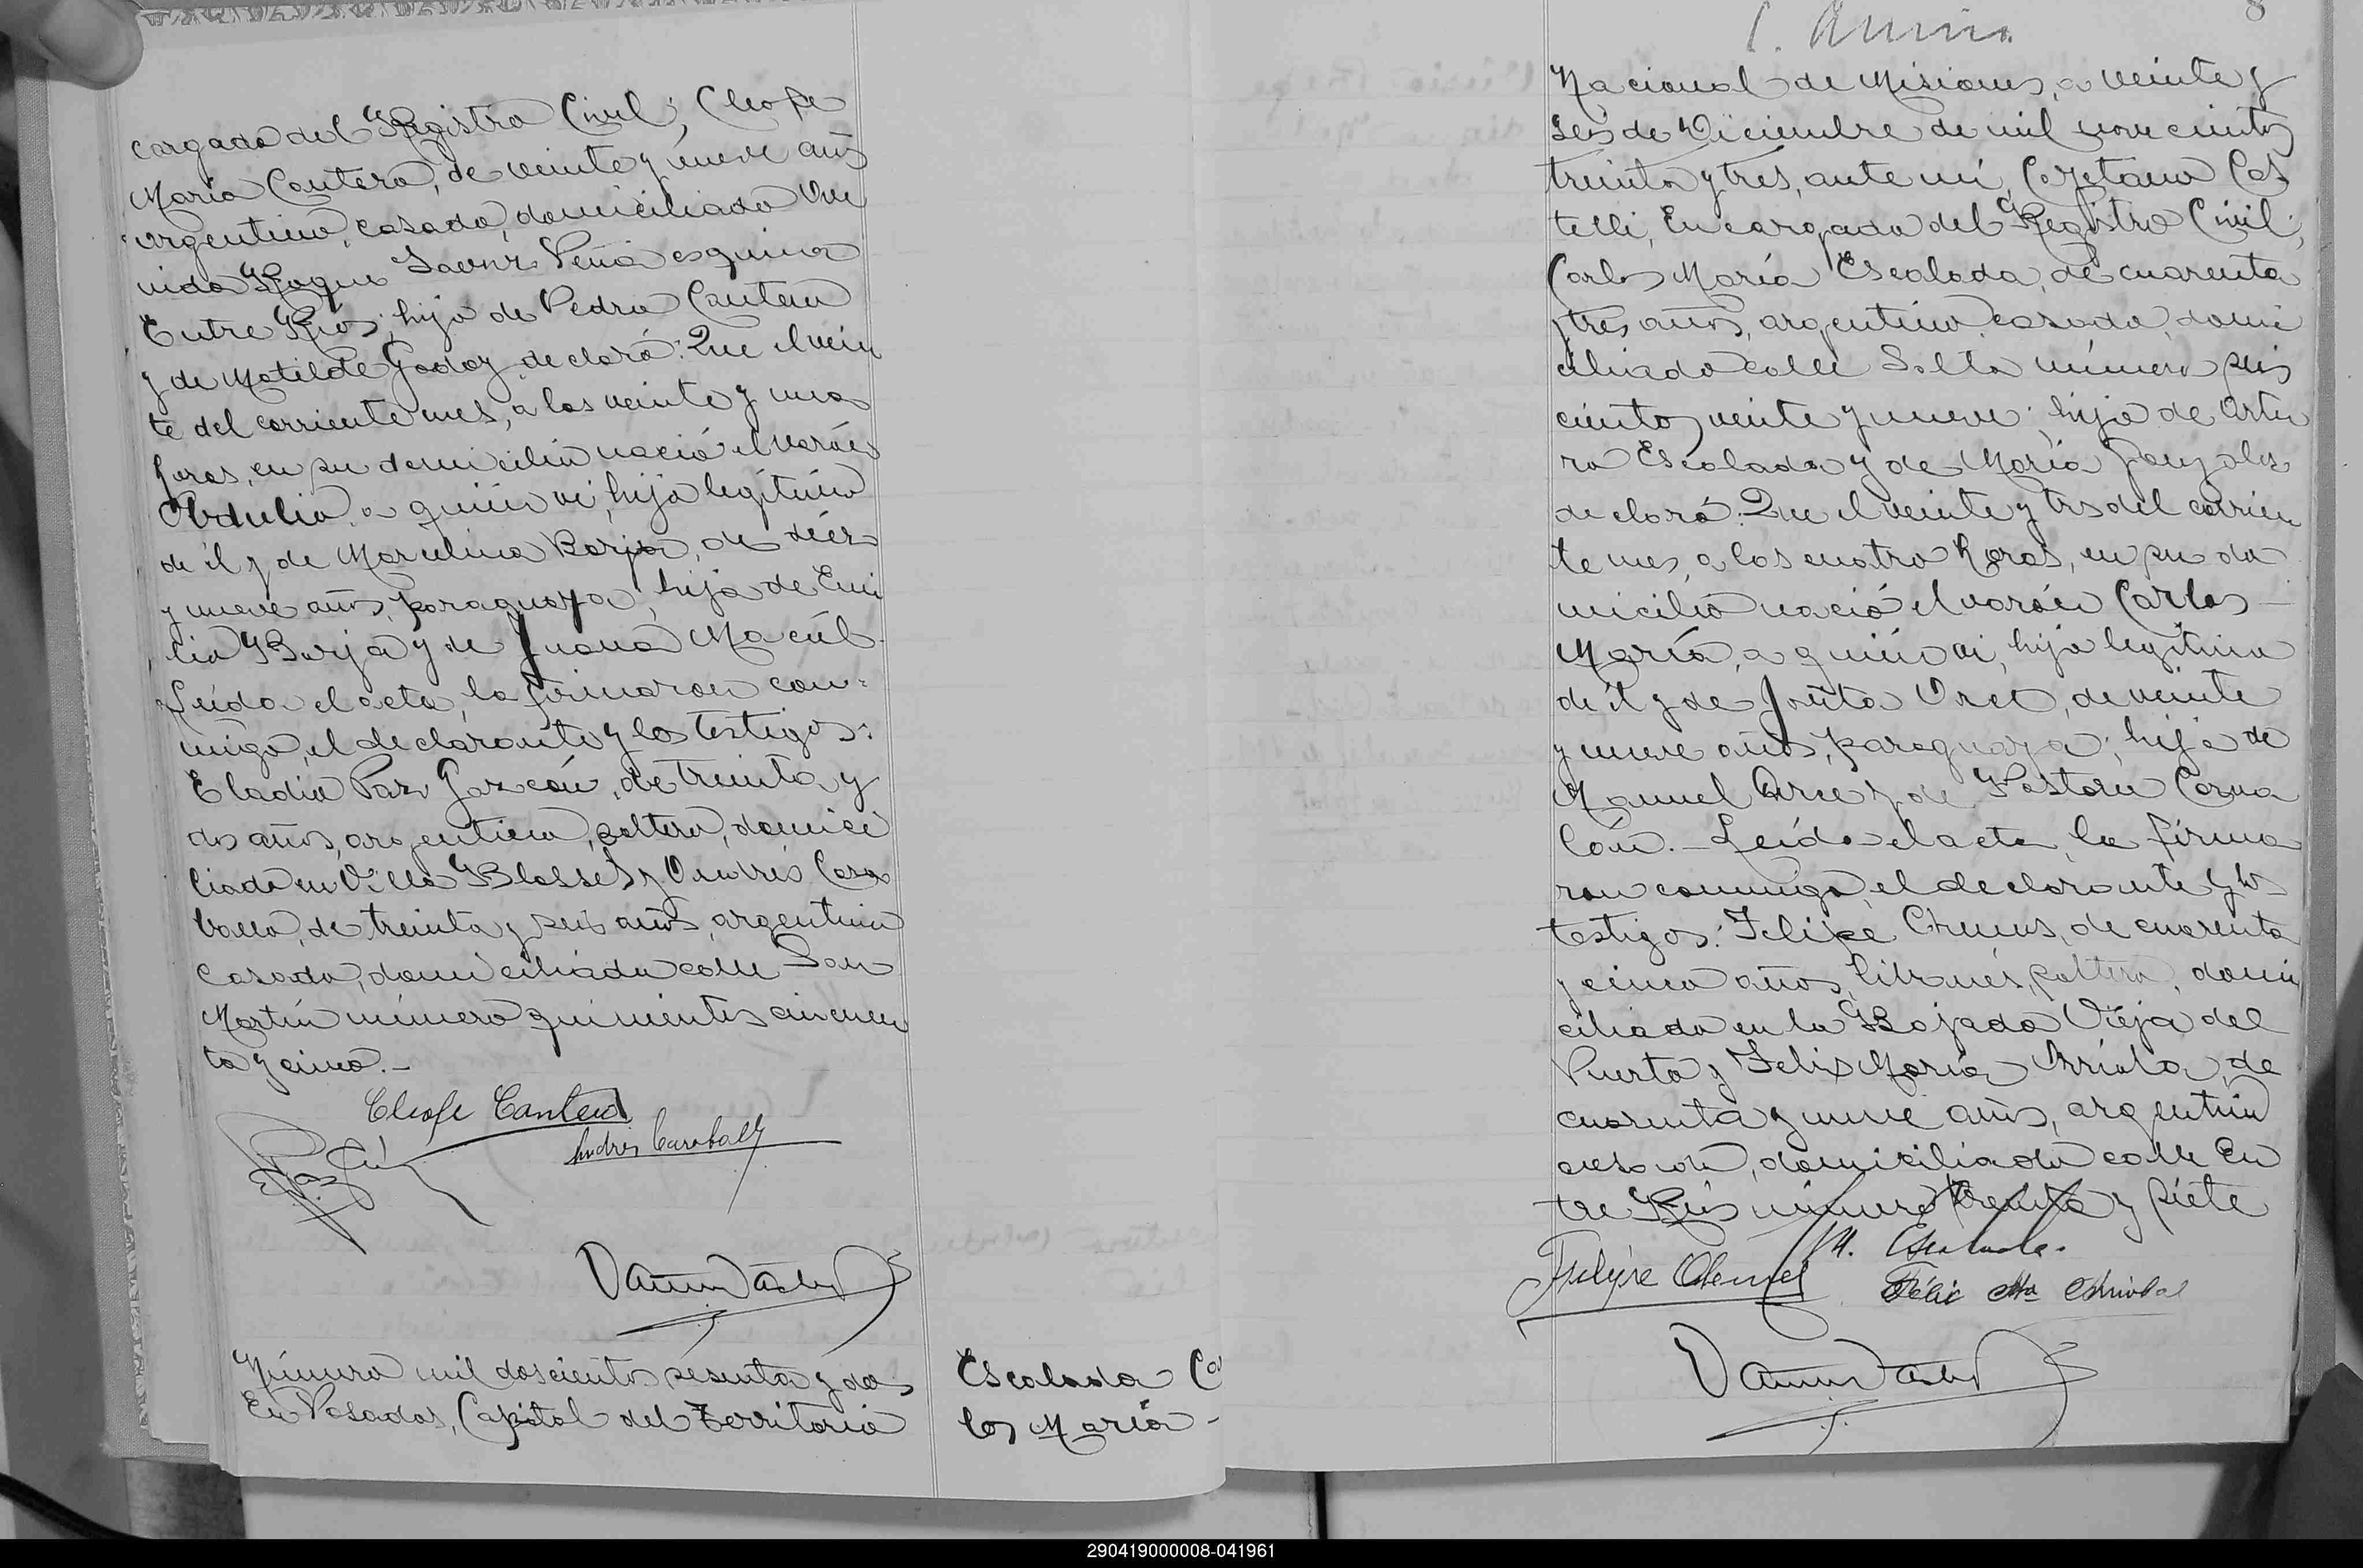 cargado del Registro Civil; Cleofe
María Cantero, de veinte y nueve años
argentino, casado, domiciliado Ave
nida Roque Saenz Peña esquina
Entre Ríos; hijo de Pedro Cantero
y de Matilde Godoy, declaró: Que el vein
te del corriente mes, a las veinte y una
horas, en su domicilio nació el varón
Obdulio, a quién vi, hijo legítimo
de él y de Marcelina Borja, de diez
y nueve años, paraguaya, hija de Emi
lio Borja y de Juana Maciel.
Leída el acta, la firmaron con-
migo, el declarante y los testigos:
Eladio Paz Garzón, de treinta y
dos años, argentino, soltero, domici
liado en Villa Blosset y Andrés Cara
ballo, de treinta y seis años, argentino
casado, domiciliado calle San
Martín número quinientos cincuen
ta y cinco.-
Cleofe Cantero
Andres Caraballo
Número mil doscientos sesenta y dos
En Posadas, Capital del Territorio
Escalada Ca
los María -
8
Nacional de Misiones, a veinte y
seis de Diciembre de mil novecientos
treinta y tres, ante mí, Cayetano Cas
telli, Encargado del Registro Civil;
Carlos María Escalada, de cuarenta
y tres años, argentino, casado, domi
ciliado calle Salta número seis
cientos veinte y nueve; hijo de Artu
ro Escalada y de María Gonzales
declaró: Que el veinte y tres del corrien
te mes, a las cuatro horas, en su do
micilio nació el varón Carlos
María, a quién vi, hijo legítimo
de él y de Juita Arce, de veinte
y nueve años, paraguaya; hija de
Manuel Arce y de Pastora Corva
lán.- Leída el acta, la firma
ron conmigo, el declarante y los
testigos: Felipe Chemes, de cuarenta
y cinco años, libanés, soltero, domi
ciliado en la Bajada Vieja del
Puerto y Felix María Arriola, de
cuarenta y nueve años, argentino
casado, domiciliado calle En
tre Ríos número treinta y siete
M. Escalada.
Felipe Chemes
Félix Ma Arriola
290419000008-041961